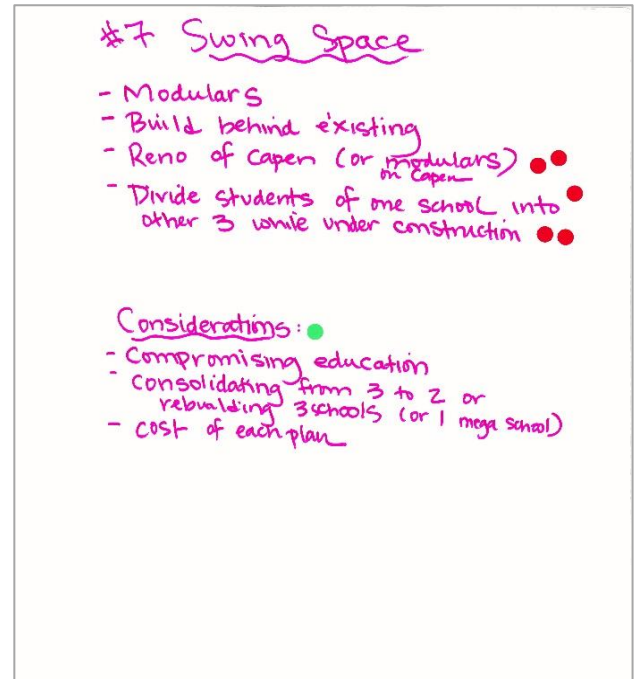 #7 Swing Space
- Modulars
- Build behind existing
- Reno of Capen (or modulars)
on Capen
- Divide students of one school into
other 3 while under construction
Considerations:
- Compromising education
- Consolidating from 3 to 2 or
rebuilding 3 schools (or 1 mega school)
- cost of each plan